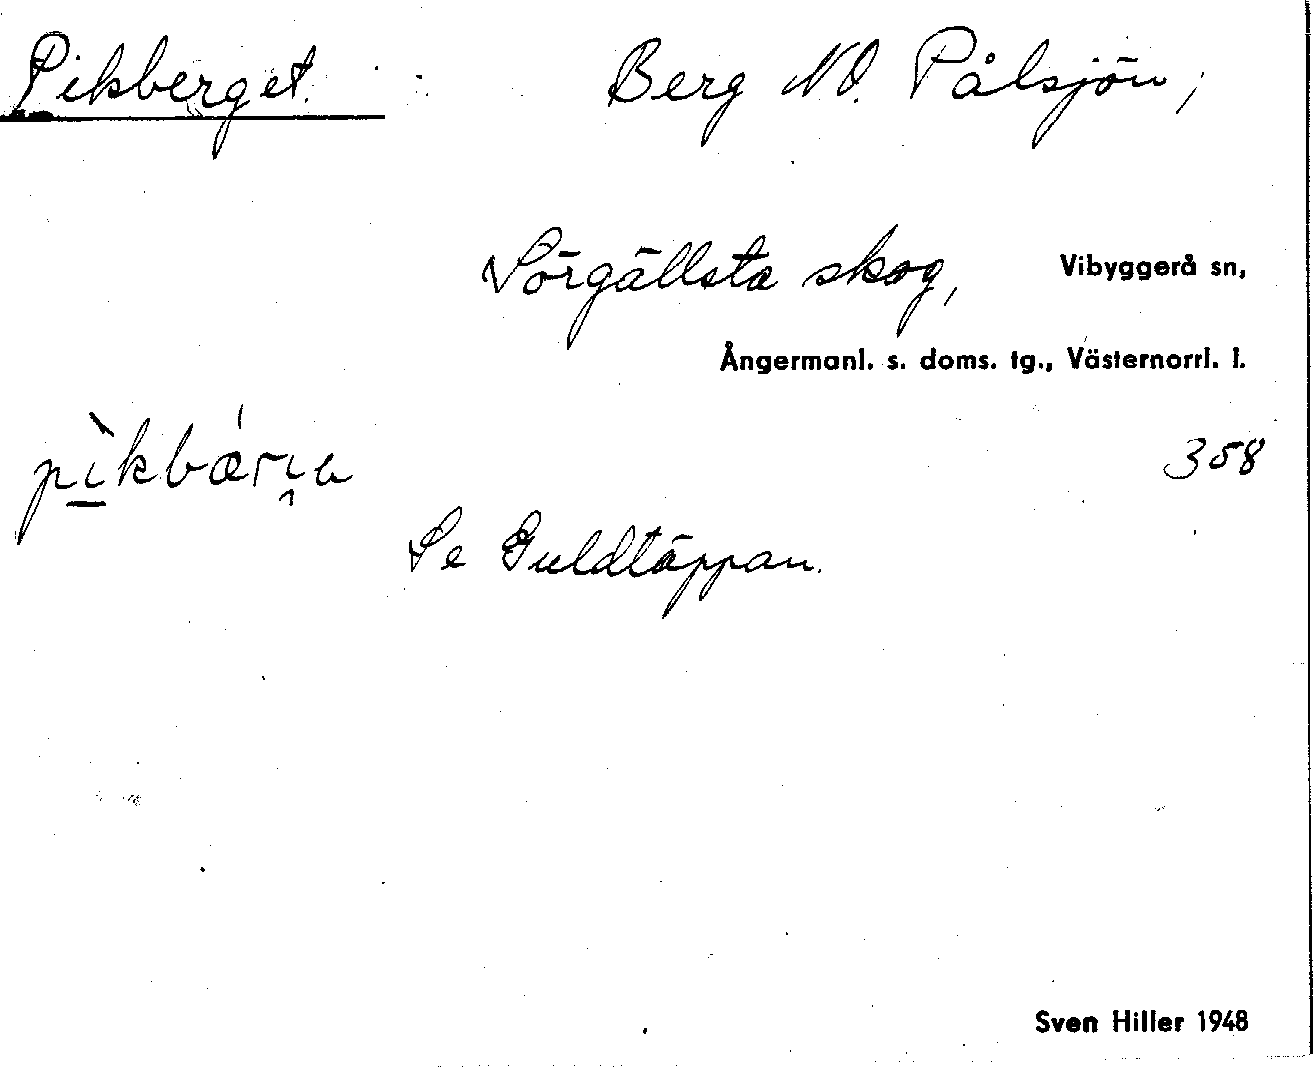 Pikberget. Berg NO. Pålsjön,
Sörgällsta skog, Vibyggerå sn,
Ångermanl. s. doms. tg., Västernorrl. l.
358
Se Guldtäppan.
Sven Hiller 1948